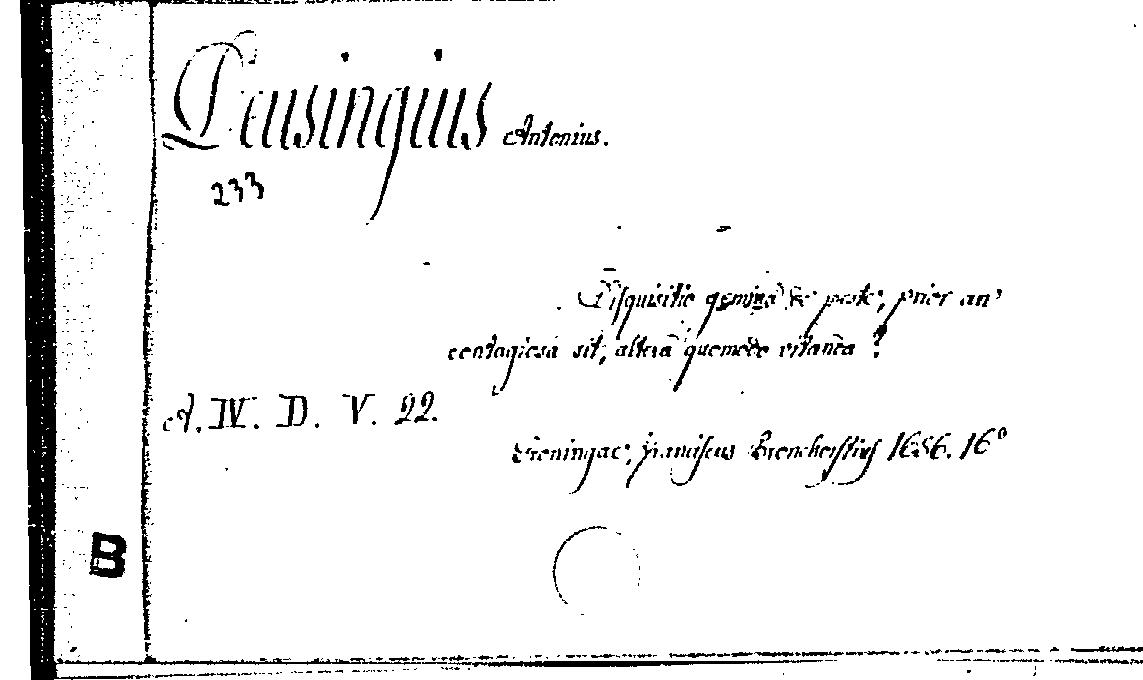 Deusingius Antonius.
233
Disquisitio gemina de peste; prior an'
contagiosa sit, altera quomodo vitanda?
A. IV. D. V. 22.
Groningae; Franciscus Bronchorstius 1656. 16°
B